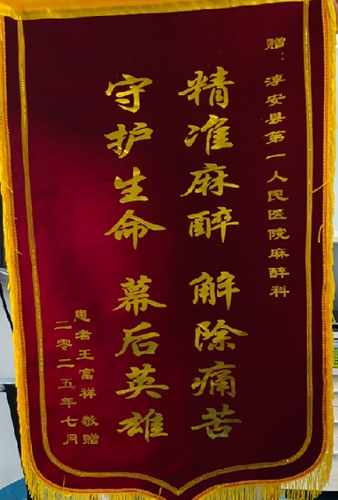 赠：淳安县第一人民医院麻醉科
精准麻醉 解除痛苦
守护生命 幕后英雄
患者王富祥 敬赠
二零二五年七月